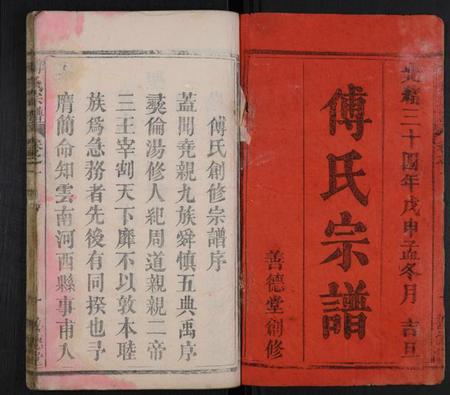 光緒三十四年戊申孟冬月 吉旦
傅氏宗譜
善德堂創修
傅氏創修宗譜序
蓋聞堯親九族舜慎五典禹序
彝倫湯修人紀周道親親二帝
三王宰割天下靡不以敦本睦
族為急務者先後有同揆也予
膺簡命知雲南河西縣事甫入